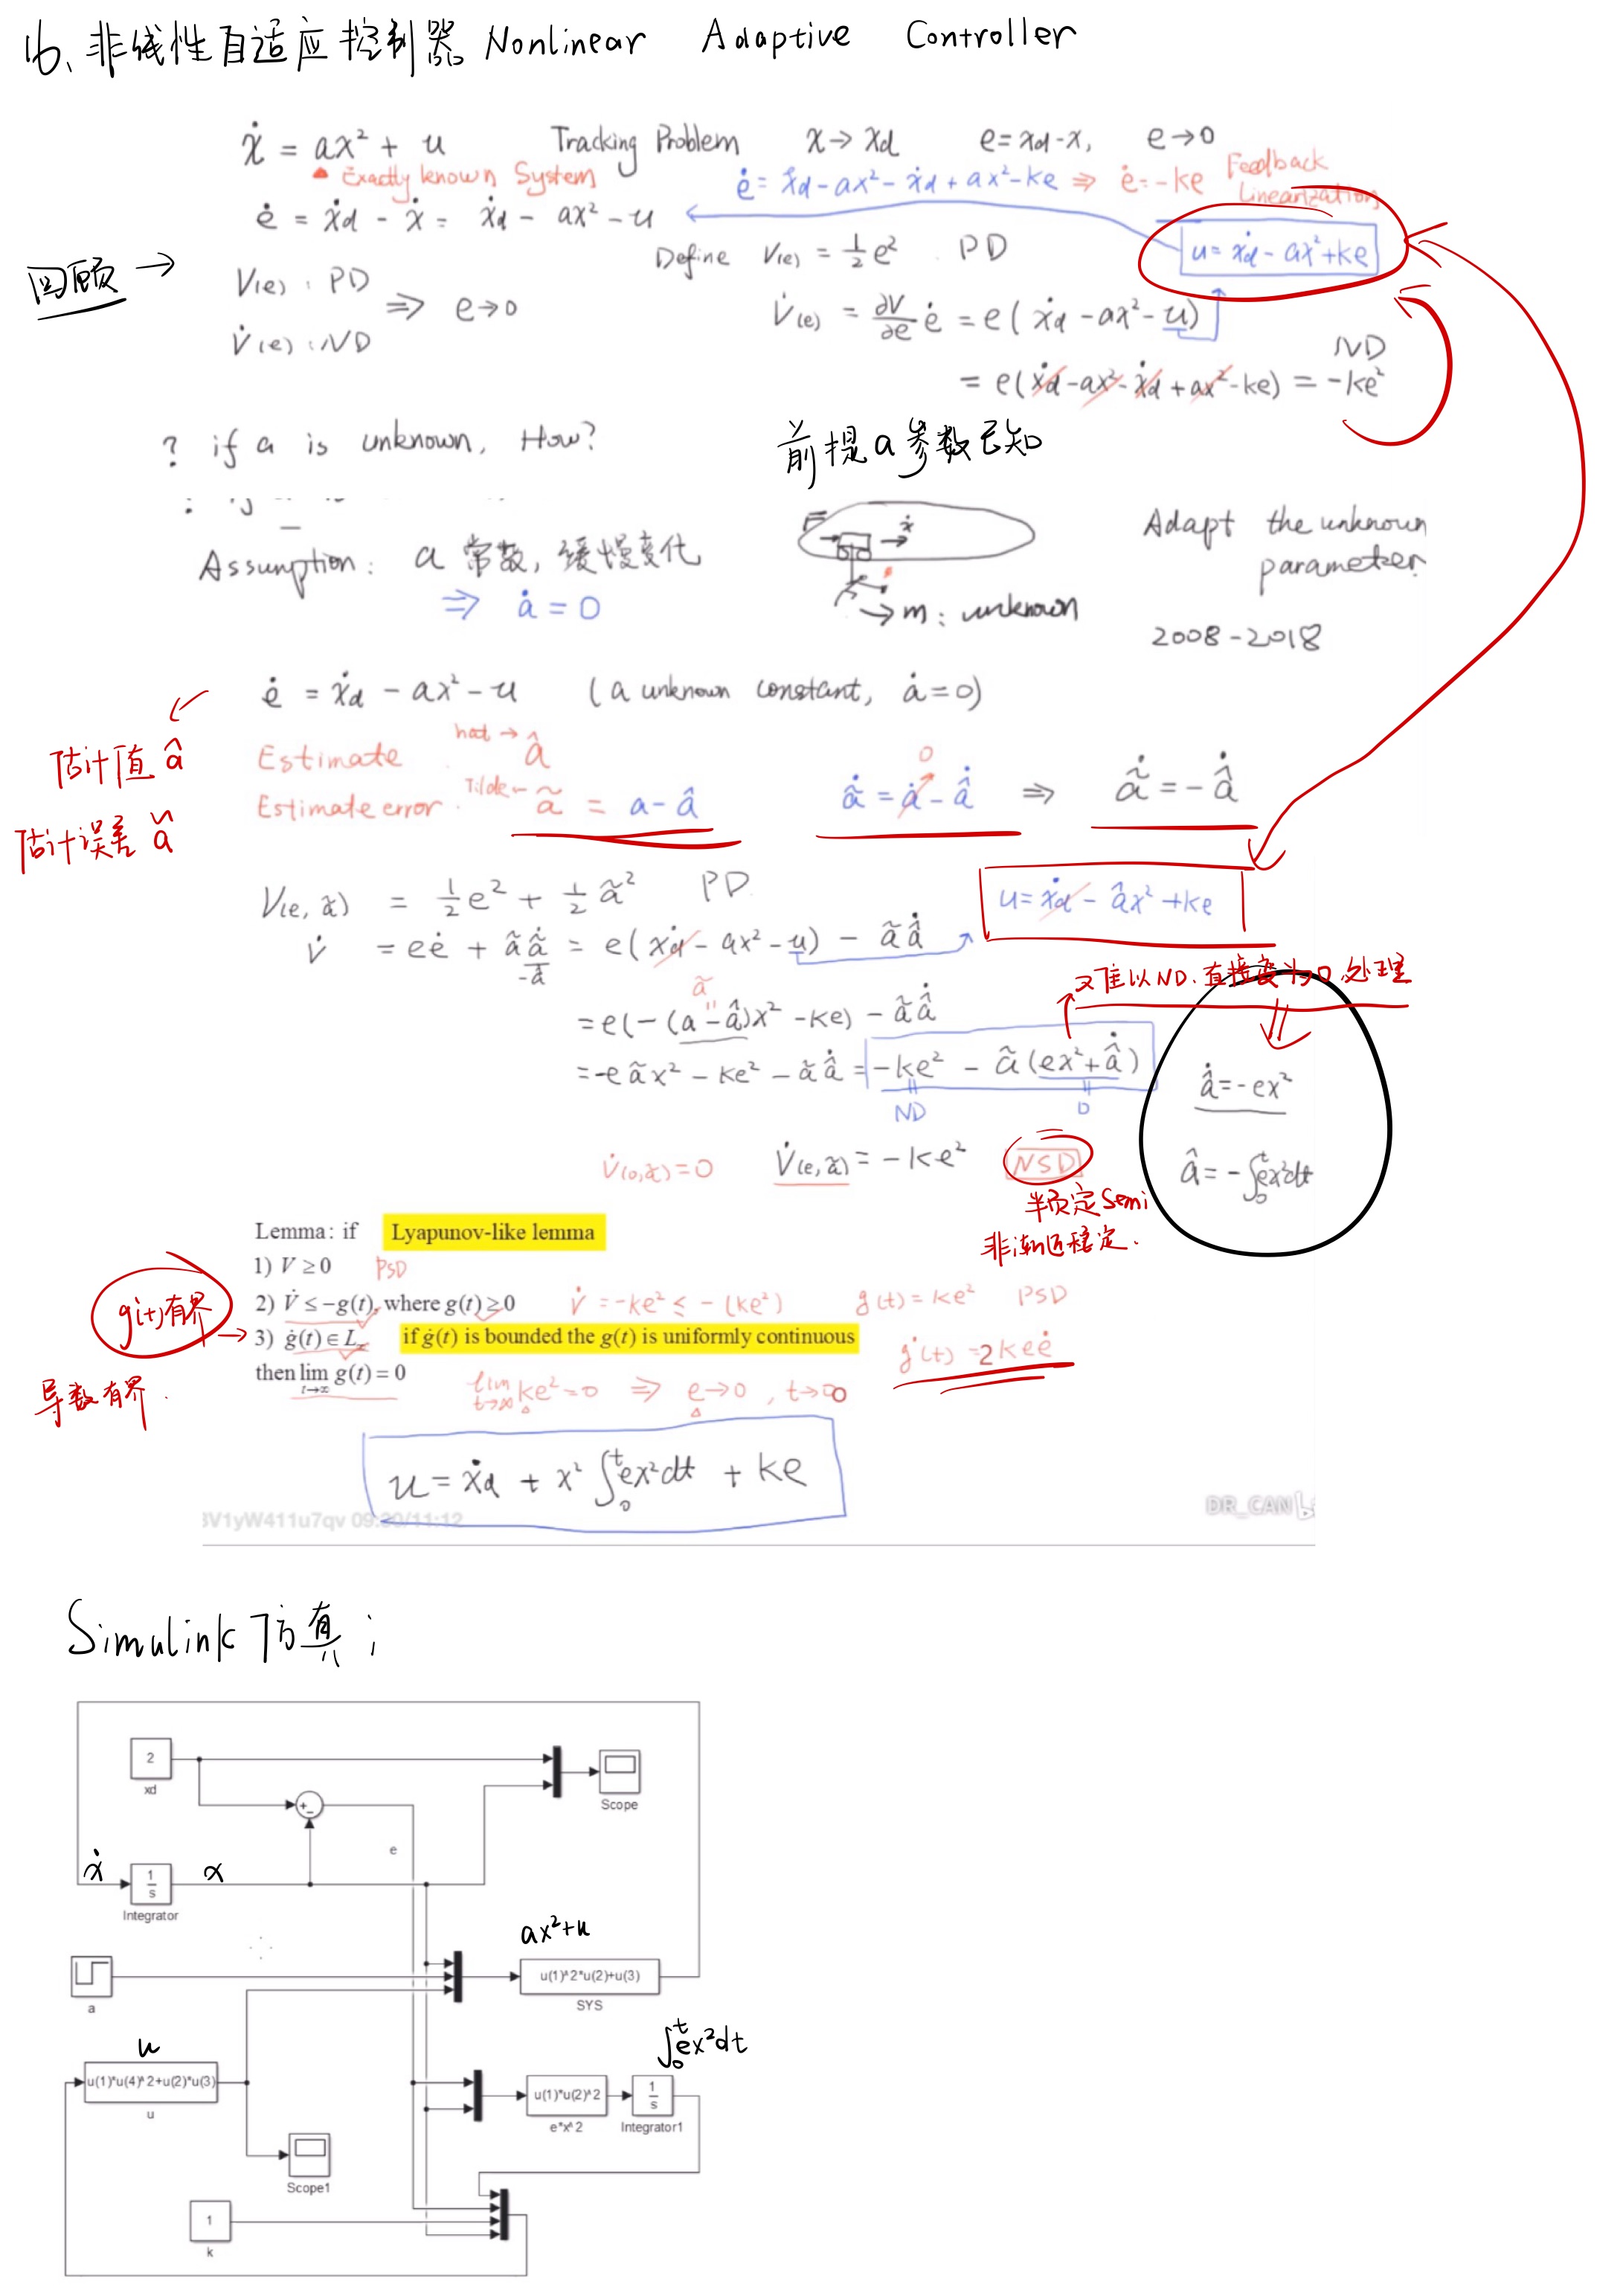 16、非线性自适应控制器 Nonlinear Adaptive Controller
ẋ = ax² + u Tracking Problem x → xd e = xd - x, e → 0
▲ Exactly known System ė = ẋd - ax² - ẋd + ax² - ke ⇒ ė = -ke Feedback Linearization
ė = ẋd - ẋ = ẋd - ax² - u
回顾 →
Define V(e) = ½e² . PD u = ẋd - ax² + ke
V(e) : PD
⇒ e → 0
V̇(e) : ND
V̇(e) = ∂V/∂e ė = e(ẋd - ax² - u)
= e(ẋd - ax² - ẋd + ax² - ke) = -ke² ND
? if a is unknown, How? 前提a参数已知
Assumption: a 常数, 缓慢变化
⇒ ȧ = 0
F ẋ
→ m : unknown
Adapt the unknown
parameter
2008-2018
ė = ẋd - ax² - u (a unknown constant, ȧ = 0)
估计值 â
Estimate hat → â
估计误差 ã
Estimate error. Tilde ã = a - â ã̇ = ȧ - â̇ ⇒ ã̇ = -â̇
0
V(e, ã) = ½e² + ½ã² PD
u = ẋd - âx² + ke
V̇ = eė + ãã̇ = e(ẋd - ax² - u) - ãâ̇
-â̇
又难以ND.直接变为0处理
ã
= e(-(a - â)x² - ke) - ãâ̇
= -eãx² - ke² - ãâ̇ = -ke² - ã(ex² + â̇)
ND 0
â̇ = -ex²
â = -∫₀ᵗ ex²dt
V̇(0,ã) = 0 V̇(e,ã) = -ke² NSD
半负定Semi
非渐近稳定.
Lemma: if Lyapunov-like lemma
1) V ≥ 0 PSD
2) V̇ ≤ -g(t), where g(t) ≥ 0 V̇ = -ke² ≤ -(ke²) g(t) = ke² PSD
g(t)有界
3) ġ(t) ∈ L∞ if ġ(t) is bounded the g(t) is uniformly continuous
ġ(t) = 2keė
then lim g(t) = 0
t→∞
导数有界.
lim ke² = 0 ⇒ e → 0, t → ∞
t→∞
u = ẋd + x² ∫₀ᵗ ex²dt + ke
BV1yW411u7qv 09:30/11:12
DR_CAN
Simulink仿真;
2
xd
Scope
+-
e
ẋ
1/s
x
Integrator
ax²+u
a
u(1)^2*u(2)+u(3)
SYS
u
∫₀ᵗ ex²dt
u(1)*u(4)^2+u(2)*u(3)
u
u(1)*u(2)^2
e*x^2
1/s
Integrator1
Scope1
1
k